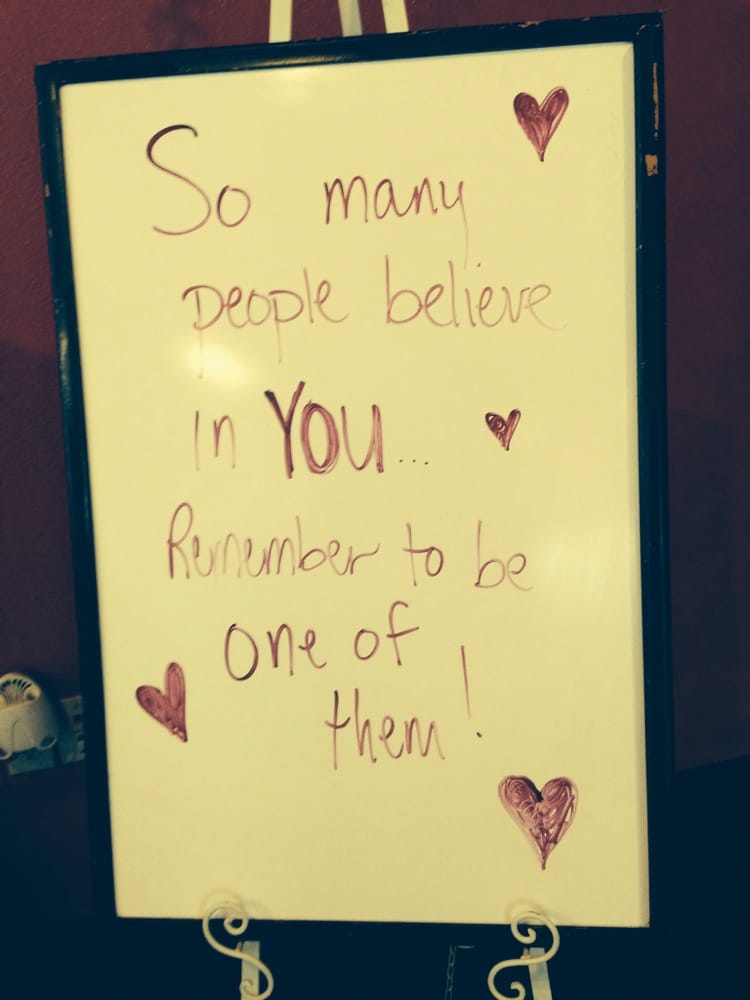 So many
people believe
in YOU...
Remember to be
one of
them!